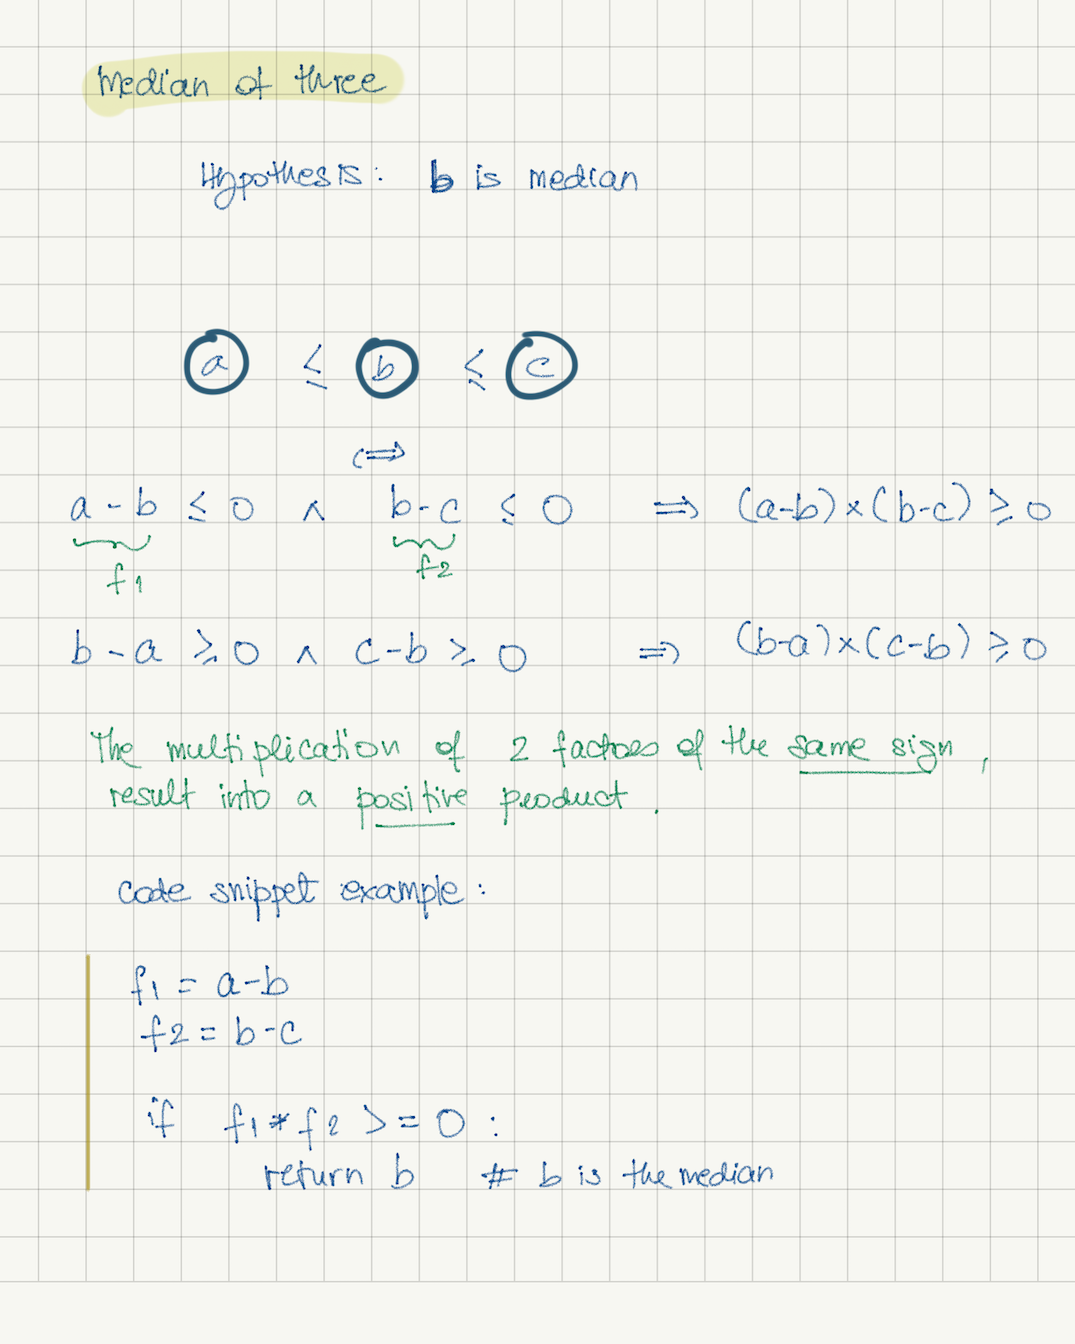 Median of three
Hypothesis: b is median
a ≤ b ≤ c
⟺
a-b ≤ 0 ∧ b-c ≤ 0 ⟹ (a-b)×(b-c) ≥ 0
f1 f2
b-a ≥ 0 ∧ c-b ≥ 0 ⟹ (b-a)×(c-b) ≥ 0
The multiplication of 2 factors of the same sign,
result into a positive product.
Code snippet example:
f1 = a-b
f2 = b-c
if f1*f2 >= 0:
return b # b is the median